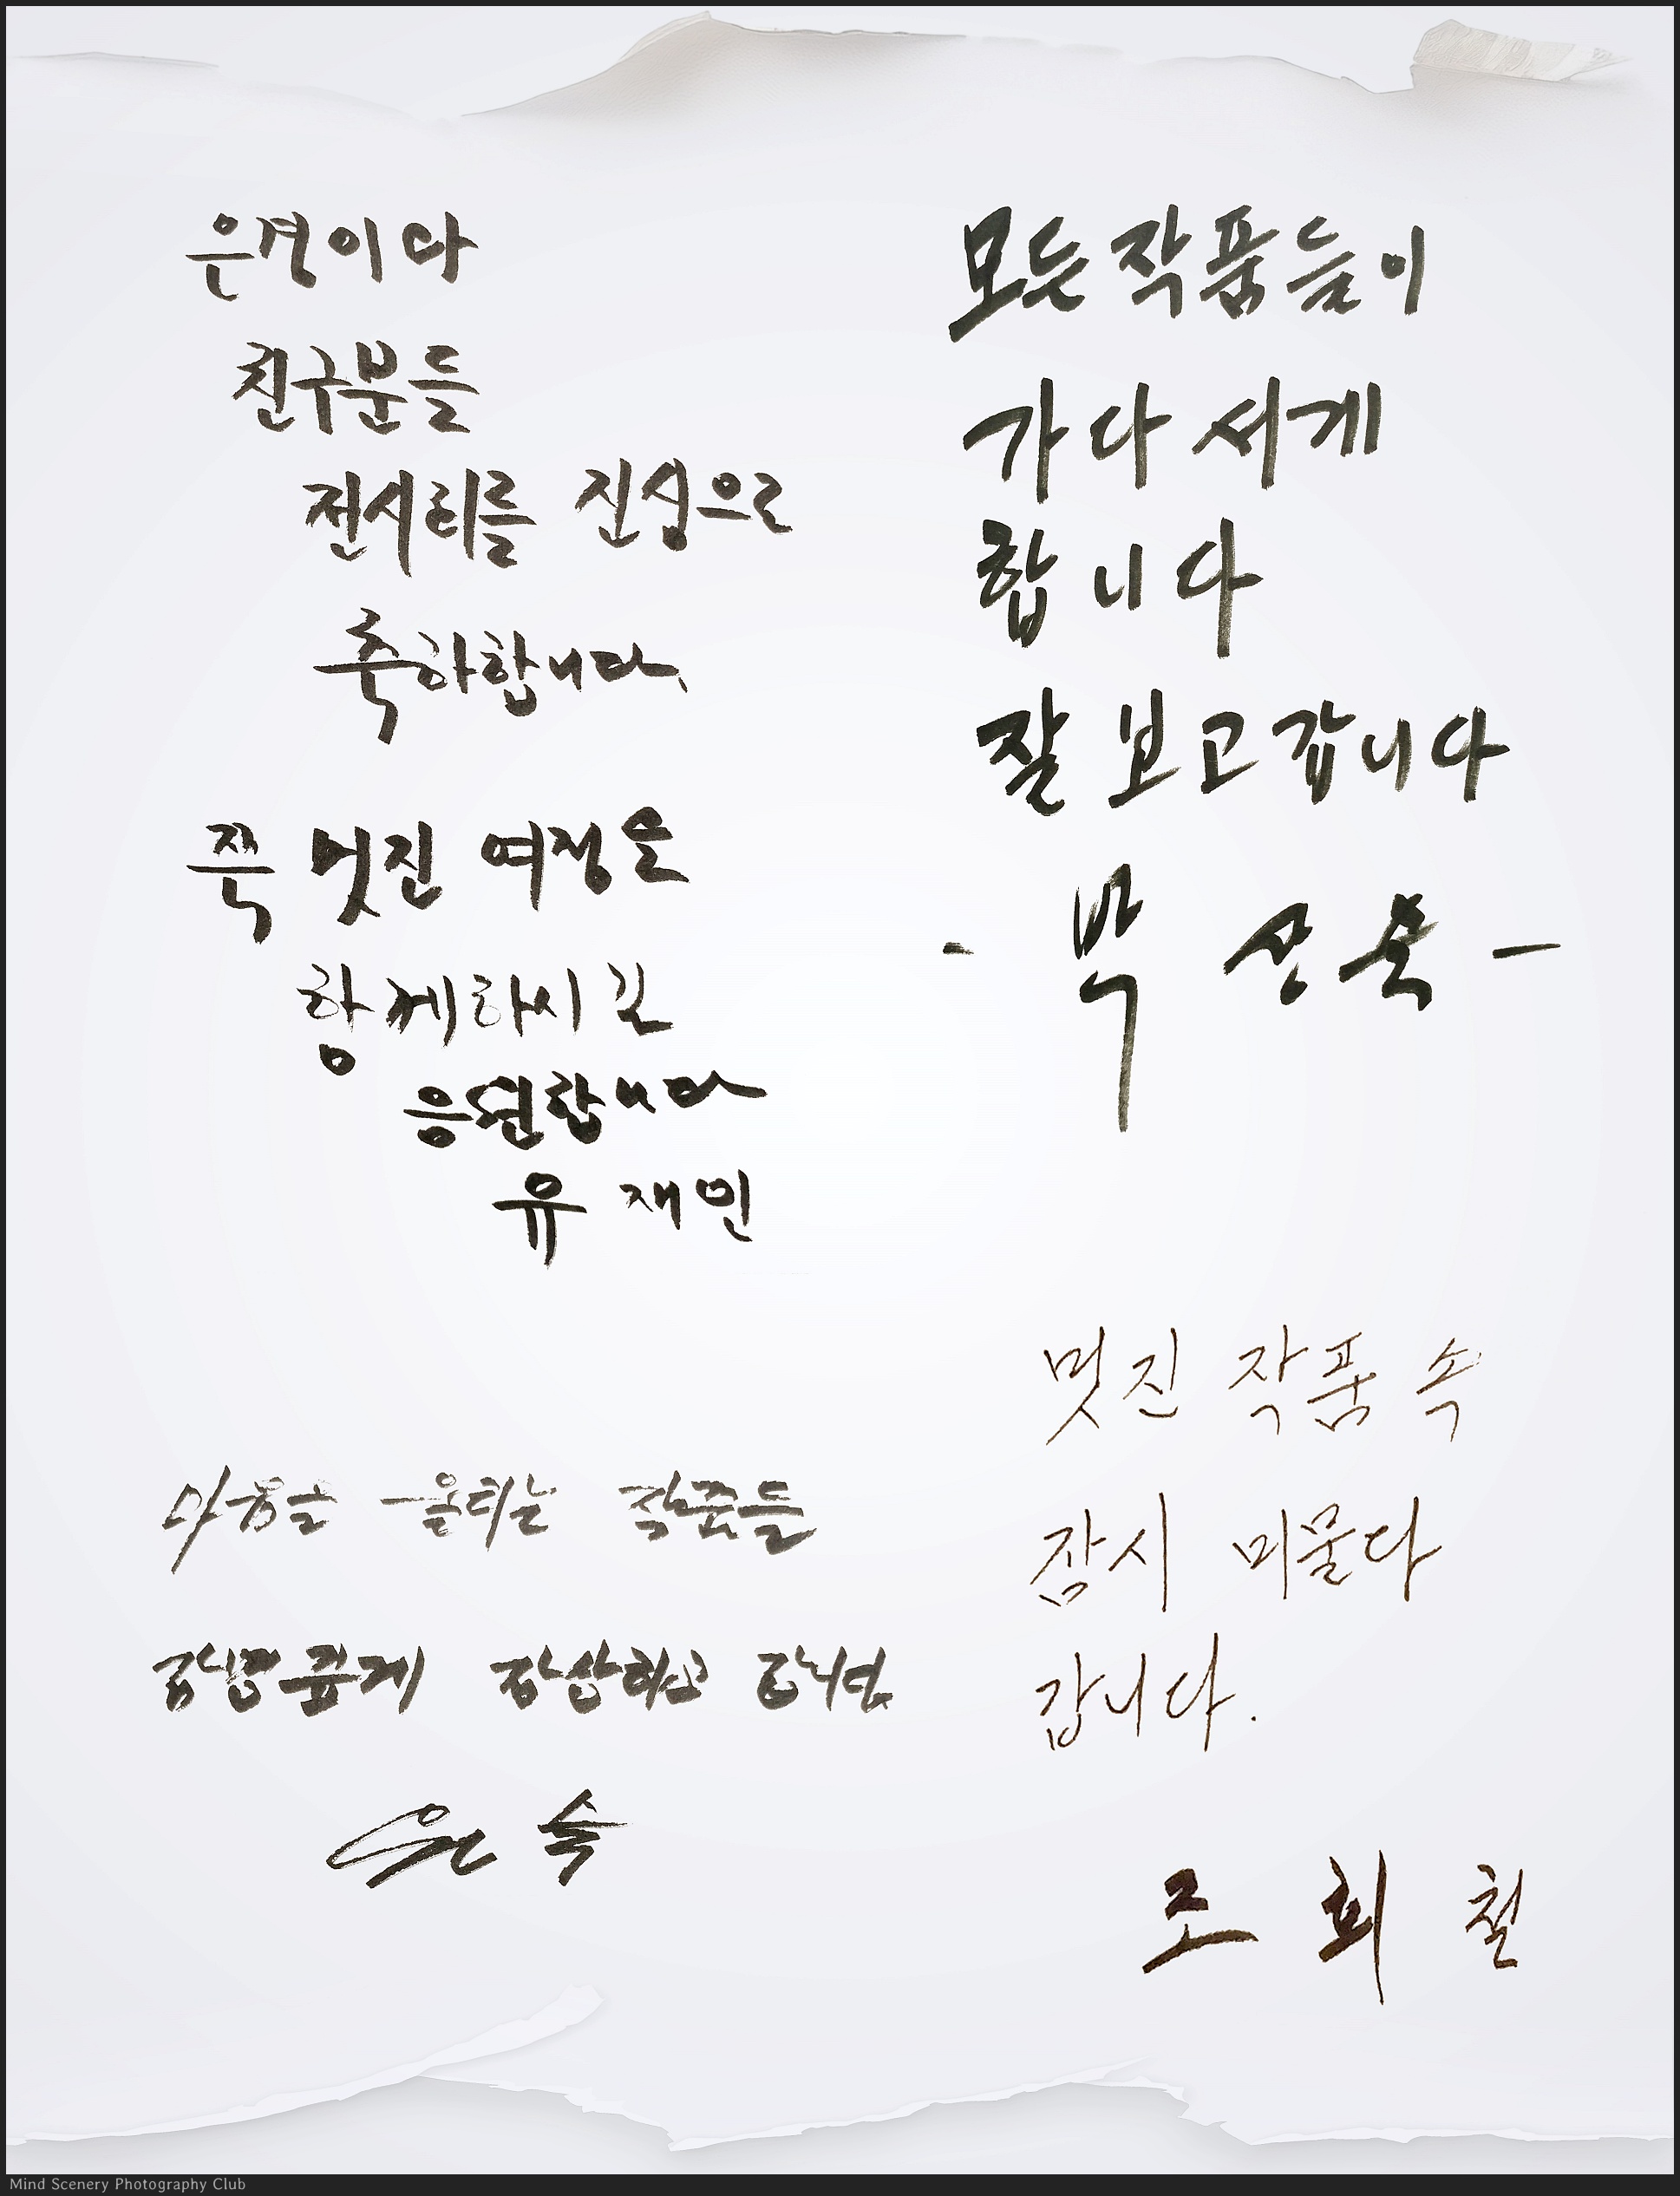 은경이와
친구분들
전시회를 진심으로
축하합니다.
쭉 멋진 여정을
함께하시길
응원합니다
유재민
모든 작품들이
가다 서게
합니다
잘 보고 갑니다
- 박 산숙 -
마음을 울리는 작품들
감명깊게 감상하고 갑니다
은숙
멋진 작품 속
잠시 머물다
갑니다.
조 희 철
Mind Scenery Photography Club